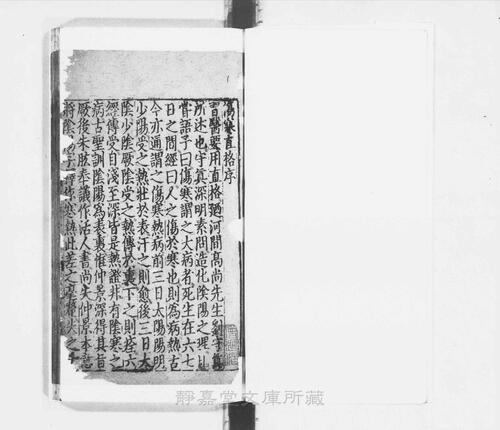 傷寒直格序
習醫要用直格廼河間高尚先生劉守真
所述也守真深明素問造化陰陽之理比
嘗語予曰傷寒謂之大病者死生在六七
日之間經曰人之傷於寒也則為病熱古
今亦通謂之傷寒熱病前三日太陽陽明
少陽受之熱壯於表汗之則愈後三日太
陰少陰厥陰受之熱傳於裏下之則痊六
經傳受自淺至深皆是熱證非有陰寒之
病古聖訓陰陽為表裏惟仲景深得其旨
厥後朱肱奉議作活人書尚失仲景本意
將陰 字釋作寒熱此差之毫釐失之千
靜嘉堂文庫所藏